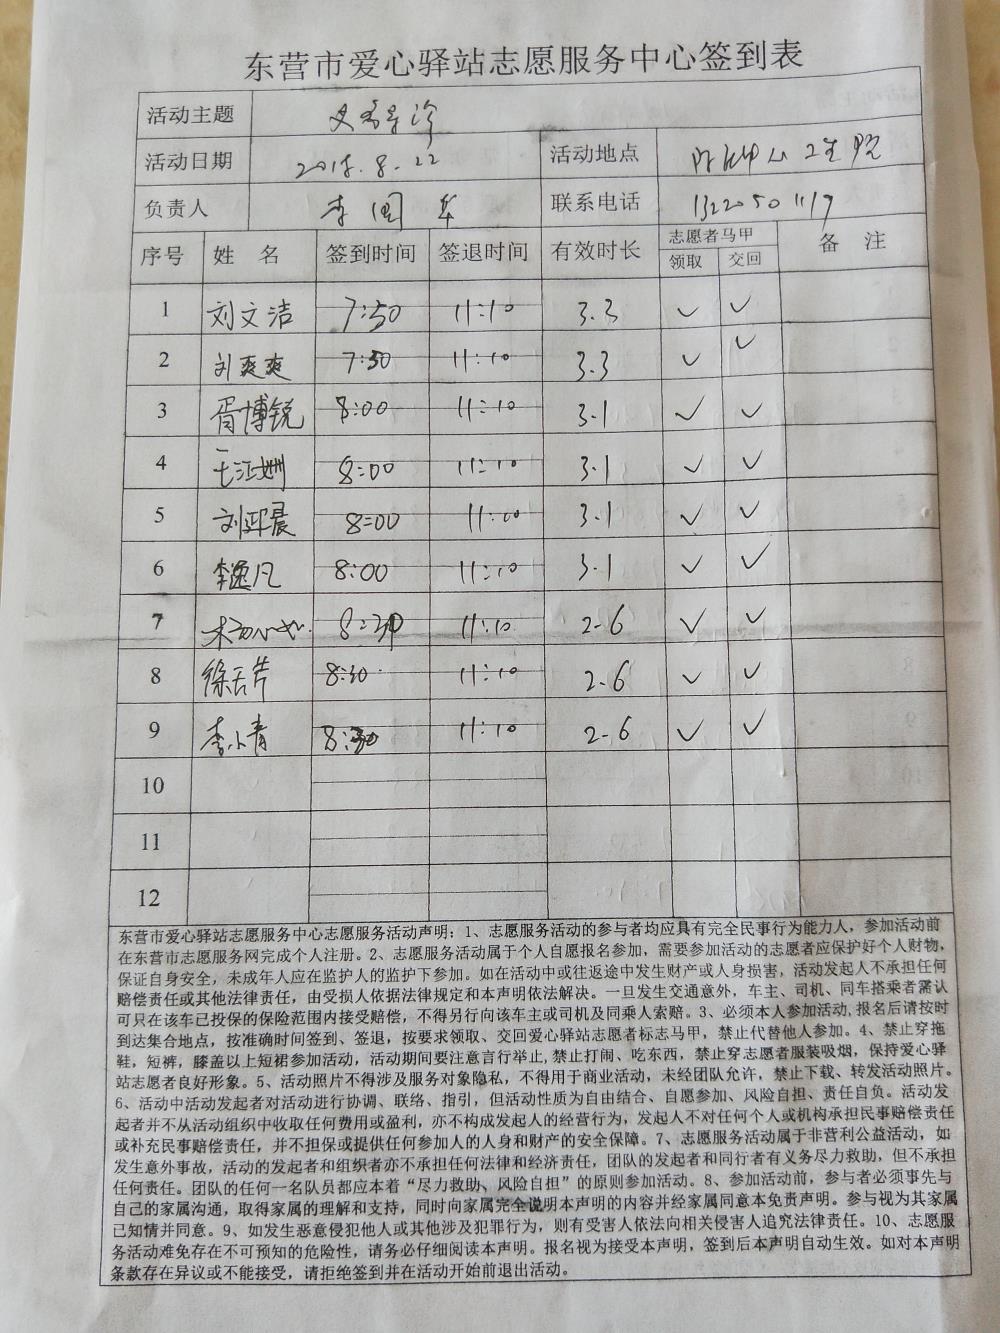 东营市爱心驿站志愿服务中心签到表
活动主题
活动日期 2018.8.22 活动地点
负责人 李国华 联系电话 13220501119
序号 姓名 签到时间 签退时间 有效时长 志愿者马甲 备注
领取 交回
1 刘文洁 7:50 11:10 3.3 ✓ ✓
2 刘爽爽 7:50 11:10 3.3 ✓ ✓
3 胥博锐 8:00 11:10 3.1 ✓ ✓
4 8:00 11:10 3.1 ✓ ✓
5 8:00 11:10 3.1 ✓ ✓
6 李逸凡 8:00 11:10 3.1 ✓ ✓
7 8:30 11:10 2.6 ✓ ✓
8 8:30 11:10 2.6 ✓ ✓
9 李小青 8:30 11:10 2.6 ✓ ✓
10
11
12
东营市爱心驿站志愿服务中心志愿服务活动声明：1、志愿服务活动的参与者均应具有完全民事行为能力人，参加活动前
在东营市志愿服务网完成个人注册。2、志愿服务活动属于个人自愿报名参加，需要参加活动的志愿者应保护好个人财物，
保证自身安全，未成年人应在监护人的监护下参加。如在活动中或往返途中发生财产或人身损害，活动发起人不承担任何
赔偿责任或其他法律责任，由受损人依据法律规定和本声明依法解决。一旦发生交通意外，车主、司机、同车搭乘者需认
可只在该车已投保的保险范围内接受赔偿，不得另行向该车主或司机及同乘人索赔。3、必须本人参加活动，报名后请按时
到达集合地点，按准确时间签到、签退，按要求领取、交回爱心驿站志愿者标志马甲，禁止代替他人参加。4、禁止穿拖
鞋，短裤，膝盖以上短裙参加活动，活动期间要注意言行举止，禁止打闹、吃东西，禁止穿志愿者服装吸烟，保持爱心驿
站志愿者良好形象。5、活动照片不得涉及服务对象隐私，不得用于商业活动，未经团队允许，禁止下载、转发活动照片。
6、活动中活动发起者对活动进行协调、联络、指引，但活动性质为自由结合、自愿参加、风险自担、责任自负。活动发
起者并不从活动组织中收取任何费用或盈利，亦不构成发起人的经营行为，发起人不对任何个人或机构承担民事赔偿责任
或补充民事赔偿责任，并不担保或提供任何参加人的人身和财产的安全保障。7、志愿服务活动属于非营利公益活动，如
发生意外事故，活动的发起者和组织者亦不承担任何法律和经济责任，团队的发起者和同行者有义务尽力救助，但不承担
任何责任。团队的任何一名队员都应本着“尽力救助、风险自担”的原则参加活动。8、参加活动前，参与者必须事先与
自己的家属沟通，取得家属的理解和支持，同时向家属完全说明本声明的内容并经家属同意本免责声明。参与视为其家属
已知情并同意。9、如发生恶意侵犯他人或其他涉及犯罪行为，则有受害人依法向相关侵害人追究法律责任。10、志愿服
务活动难免存在不可预知的危险性，请务必仔细阅读本声明。报名视为接受本声明，签到后本声明自动生效。如对本声明
条款存在异议或不能接受，请拒绝签到并在活动开始前退出活动。